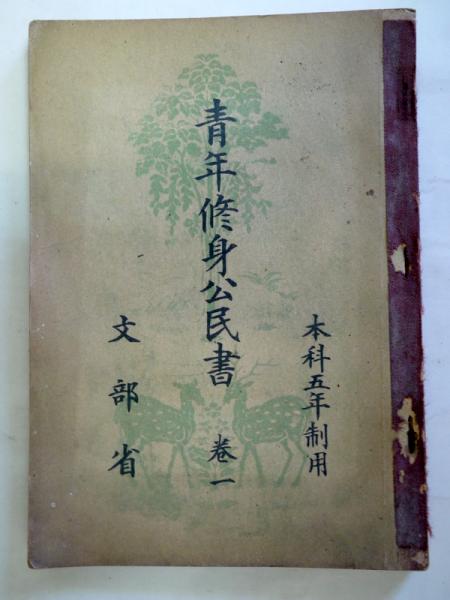 本科五年制用
青年修身公民書 巻一
文部省